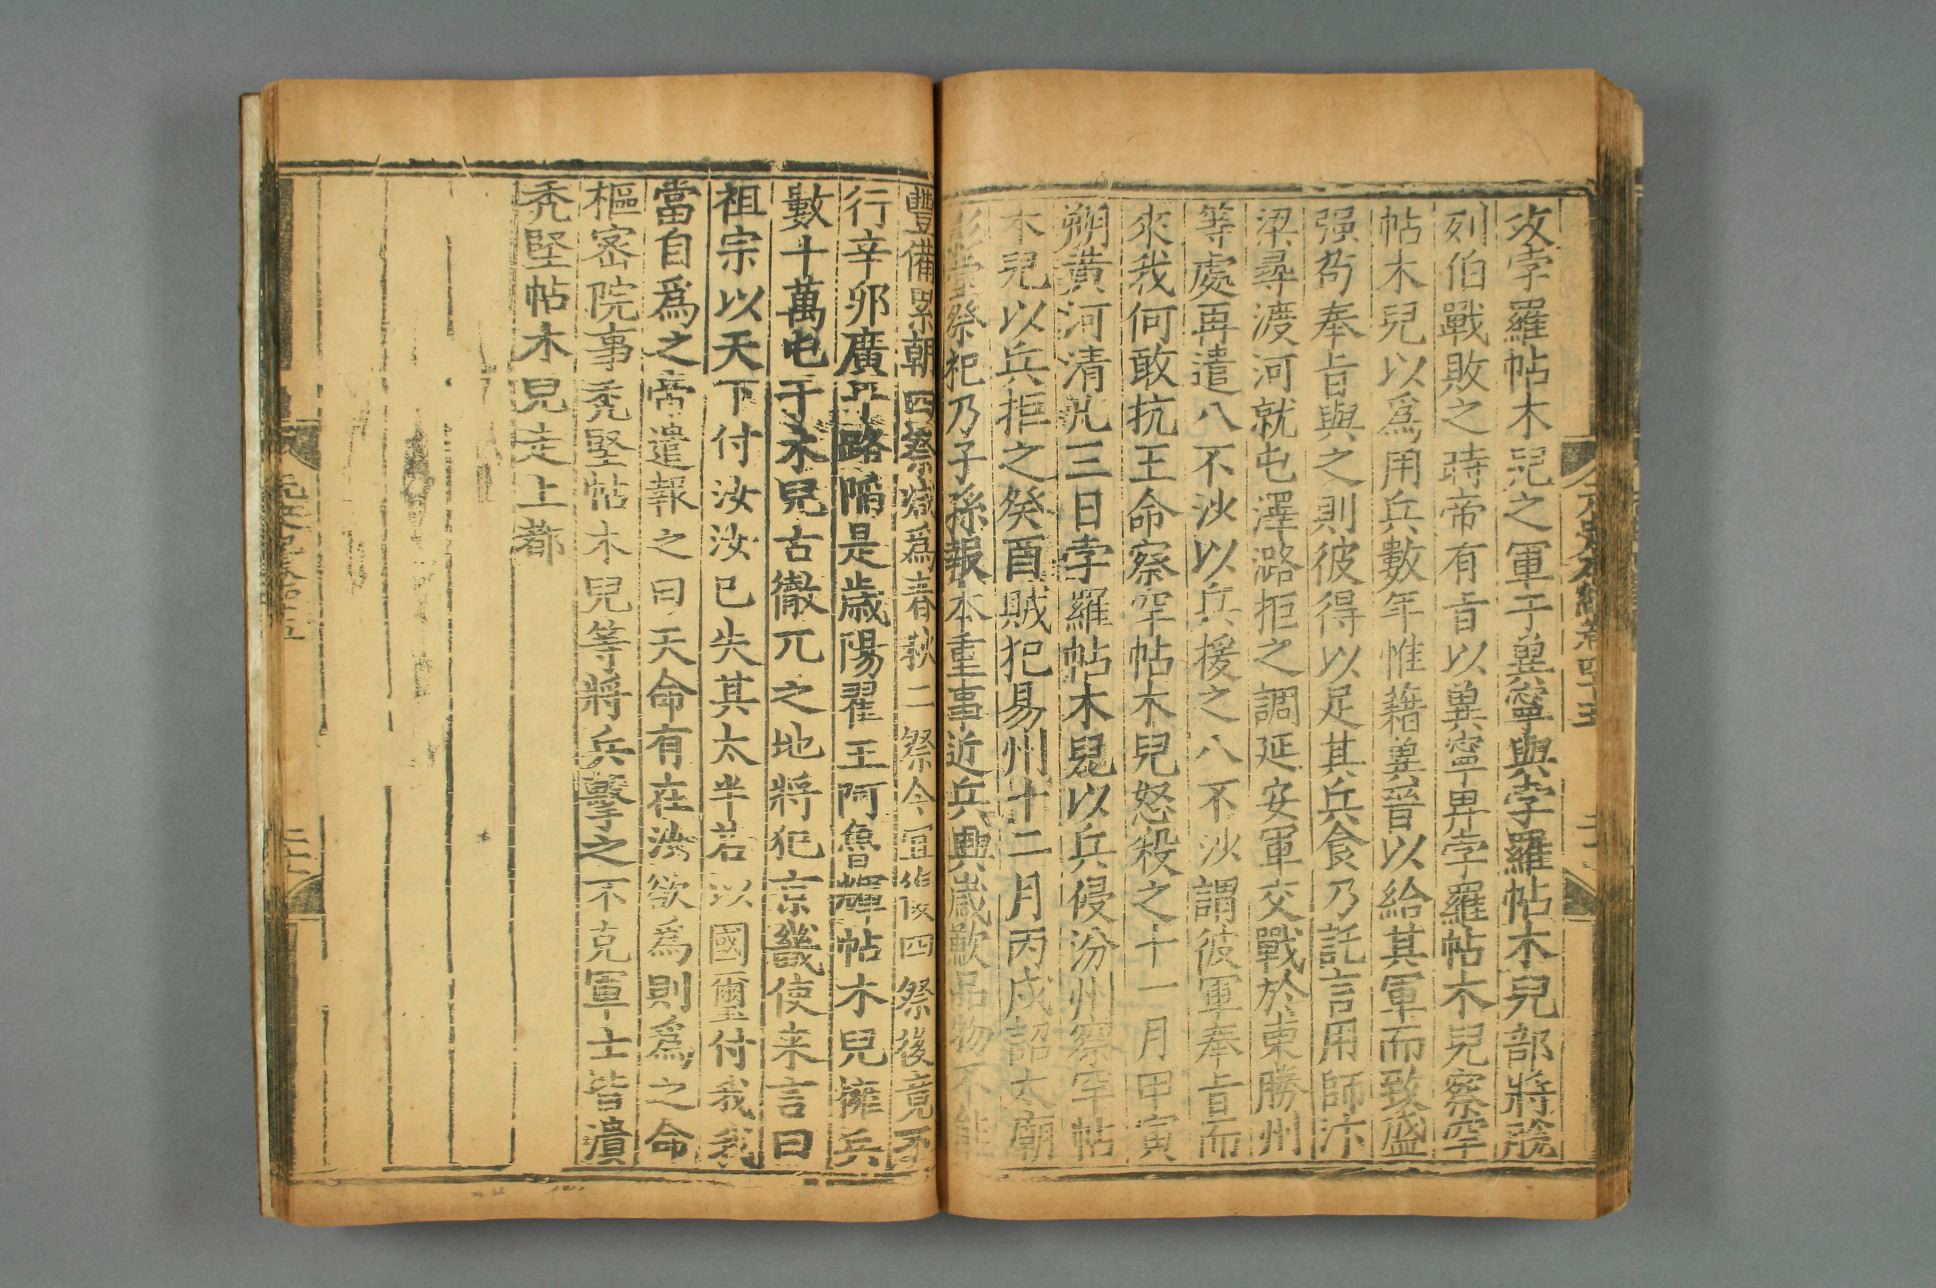 攻孛羅帖木兒之軍于兾寧與孛羅帖木兒部將脫
列伯戰敗之時帝有旨以兾寧畀孛羅帖木兒察罕
帖木兒以爲用兵數年惟藉兾晉以給其軍而致盛
强苟奉旨與之則彼得以足其兵食乃託言用師汴
梁尋渡河就屯澤潞拒之調延安軍交戰於東勝州
等處再遣八不沙以兵援之八不沙謂彼軍奉旨而
來我何敢抗王命察罕帖木兒怒殺之十一月甲寅
朔黄河清凡三日孛羅帖木兒以兵侵汾州察罕帖
木兒以兵拒之癸酉賊犯易州十二月丙戌詔太廟
影堂祭祀乃子孫報本重事近兵興歲歉品物不能
豐備累朝四祭減爲春秋二祭今宜復四祭後竟不
行辛卯廣平路陷是歲陽翟王阿魯輝帖木兒擁兵
數十萬屯于木兒古徹兀之地將犯京畿使来言曰
祖宗以天下付汝汝已失其太半若以國璽付我我
當自爲之帝遣報之曰天命有在汝欲爲則爲之命
樞密院事禿堅帖木兒等將兵擊之不克軍士皆潰
禿堅帖木兒走上都